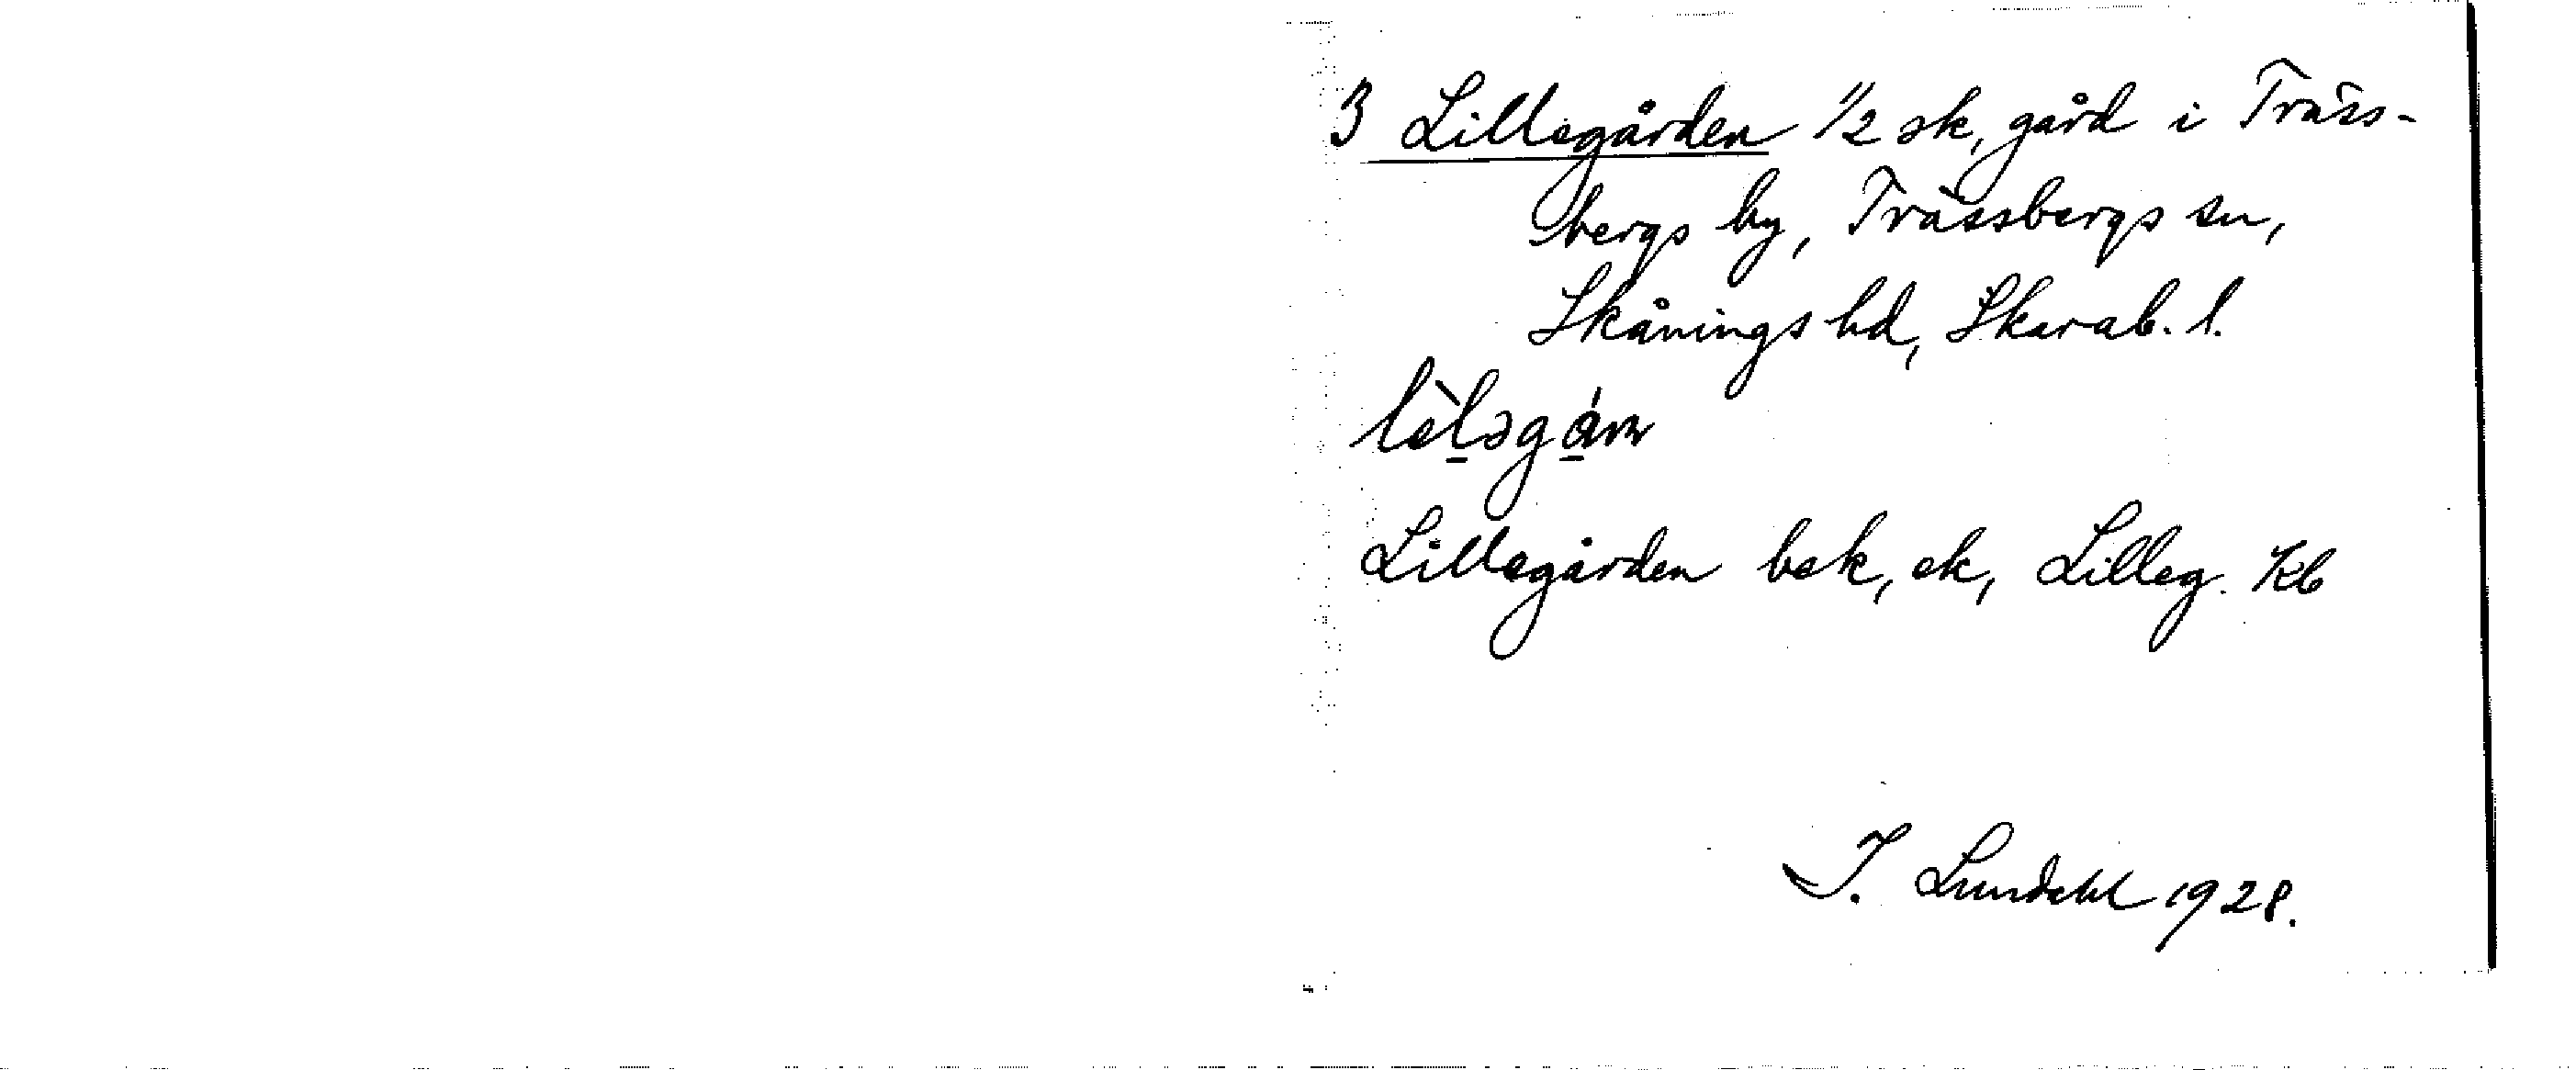 3 Lillegården 1/2 sk, gård i Träss-
bergs by, Trässbergs sn,
Skånings hd, Skarab. l.
Lillegården bek, ek, Lilleg. Kb
I. Lundahl 1928.